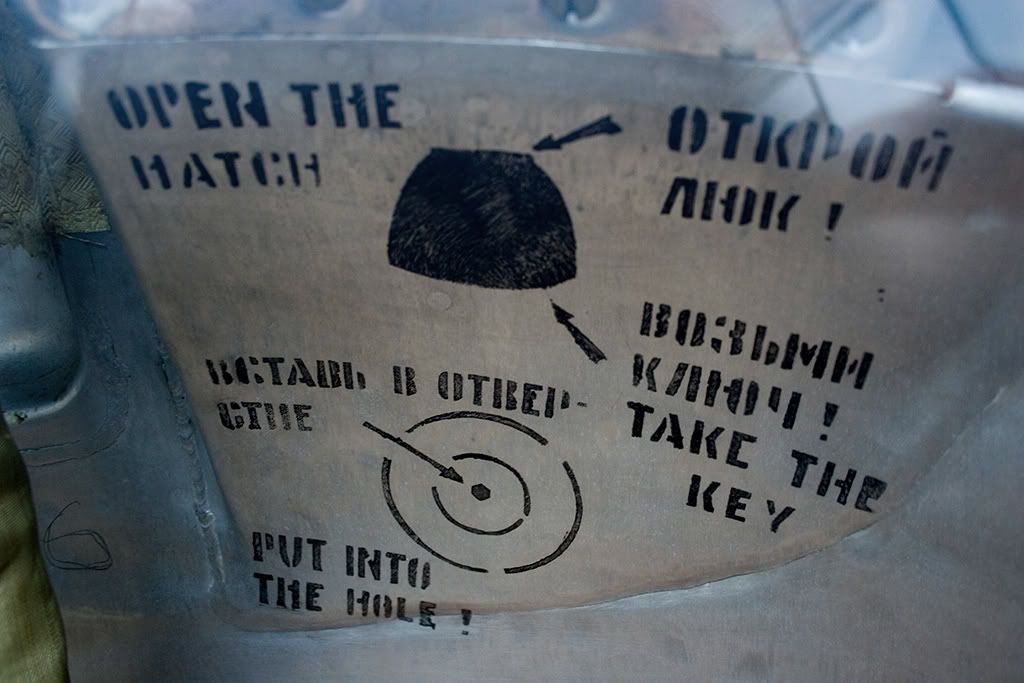 OPEN THE
HATCH
ОТКРОЙ
ЛЮК !
ВОЗЬМИ
КЛЮЧ !
TAKE THE
KEY
ВСТАВЬ В ОТВЕР-
СТИЕ
PUT INTO
THE HOLE !
6